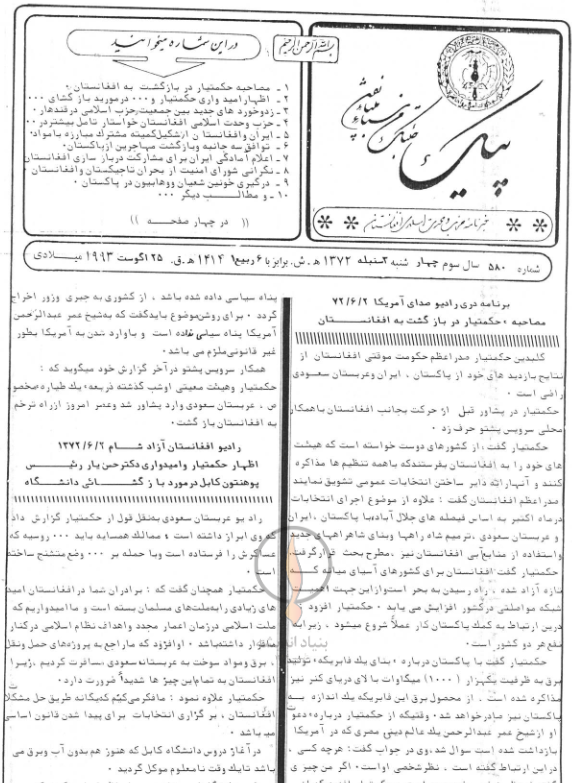 بسم الله الرحمن الرحیم
در این شماره میخوانید
۱ - مصاحبه حکمتیار در بازگشت به افغانستان ۰
۲ - اظهار امید واری حکمتیار و ۰۰۰ در مورید باز گشای ۰۰۰
۳ - زدوخورد های جدید بین جمعیت، حزب اسلامی در قندهار ۰
۴ - حزب وحدت اسلامی افغانستان خواستار تامل بیشتر در ۰۰
۵ - ایران و افغانستان از تشکیل کمیته مشترک مبارزه با مواد ۰
۶ - توافق سه جانبه وبازگشت مهاجرین از پاکستان ۰
۷ - اعلام آمادگی ایران برای مشارکت در باز سازی افغانستان
۸ - نگرانی شورای امنیت از بحران تاجیکستان و افغانستان
۹ - درگیری خونین شعیان و وهابیون در پاکستان ۰
۱۰ - و مطالب دیگر ۰۰۰
(( در چهار صفحه ))
پیک
خبرنامه
شماره ۵۸۰ سال سوم چهار شنبه ۳ سنبله ۱۳۷۲ ه‍.ش. برابر با ۶ ربیع ۱ ۱۴۱۴ ه‍.ق. ۲۵ اگوست ۱۹۹۳ میلادی
برنامه دری رادیو صدای آمریکا ۷۲/۶/۲
مصاحبه ، حکمتیار در باز گشت به افغانستان
گلبدین حکمتیار صدر اعظم حکومت موقتی افغانستان از
نتایج بازدید های خود از پاکستان ، ایران و عربستان سعودی
راضی است ۰
حکمتیار در پشاور قبل از حرکت بجانب افغانستان با همکار
محلی سرویس پشتو حرف زد ۰
حکمتیار گفت ، از کشورهای دوست خواسته است که هیئت
های خود را به افغانستان بفرستند که با همه تنظیم ها مذاکره
کنند و آنها را که دایر ساختن انتخابات عمومی تشویق نمایند
صدر اعظم افغانستان گفت : علاوه از موضوع اجرای انتخابات
در ماه اکتبر به اساس فیصله های جلال آباد، با پاکستان ، ایران
و عربستان سعودی ، ترمیم شاه راهها وبنای شاهراههای جدید
واستفاده از منابع آبی افغانستان نیز ، مطرح بحث قرار گرفت ۰
حکمتیار گفت افغانستان برای کشورهای آسیای میانه که
تازه آزاد شده ، راه رسیدن به بحر است و از این جهت اهمیت
شبکه مواصلتی در کشور افزایش می یابد ۰ حکمتیار افزود که
درین ارتباط به کمک پاکستان کار عملاً شروع میشود ، زیرا به
نفع هر دو کشور است ۰
حکمتیار گفت با پاکستان درباره ، بنای یک فابریکه ، تولید
برق به ظرفیت یکهزار (۱۰۰۰) میگاوات با لای دریای کنر نیز
مذاکره شده است . از محصول برق این فابریکه یک اندازه به
پاکستان نیز صادر خواهد شد ۰ وقتیکه از حکمتیار درباره ، دعو
او از شیخ عمر عبدالرحمن یک عالم دینی مصری که در آمریکا
بازداشت شده است سوال شد، وی در جواب گفت : هرچه کسی ،
در این ارتباط گفته است . نظر شخصی اواست ، اگر من چیزی
پناه سیاسی داده شده باشد ، از کشوری به جبری وزور اخراج
گردد ۰ برای روشن موضوع باید گفت که به شیخ عمر عبدالرحمن
آمریکا پناه سیاسی نداده است و با وارد شدن به آمریکا بطور
غیر قانونی ملزم می باشد ۰
همکار سرویس پشتو در آخر گزارش خود میگوید که :
حکمتیار وهیئت معیتی او شب گذشته ذریعه ، یک طیاره مخصو
ص ، عربستان سعودی وارد پشاور شد وعصر امروز از راه ترخم
به افغانستان باز گشت ۰
رادیو افغانستان آزاد شام ۱۳۷۲/۶/۲
اظهار حکمتیار و امیدواری دکتر حسن یار رئیس
پوهنتون کابل در مورد باز گشائی دانشگاه
رادیو عربستان سعودی به نقل قول از حکمتیار گزارش داد
که وی ابراز داشته است : ممالک همسایه باید ۰۰۰ روسیه که
عساکرش را فرستاده است ویا حمله بر ۰۰۰ وضع متشنج ساخته
است ۰
حکمتیار همچنان گفت که : برادران شما در افغانستان امید
های زیادی را به ملت های مسلمان بسته است و ما امیدواریم که
ملت اسلامی در زمان اعمار مجدد واهداف نظام اسلامی در کنار
ما قرار داشته باشد ۰ او افزود که ما راجع به پروژه های حمل ونقل
، برق ومواد سوخت به عربستان سعودی مسافرت کردیم ، زیرا
افغانستان به تمام این چیز ها شدیداً ضرورت دارد ۰
حکمتیار علاوه نمود : ما فکر می کنیم که یگانه طریق حل مشکلا
افغانستان ، بر گزاری انتخابات برای پیدا شدن قانون اساسی
می باشد ۰
در آغاز دروس دانشگاه کابل که هنوز هم بدون آب وبرق می
باشد تا یک وقت نا معلوم موکل گردید ۰